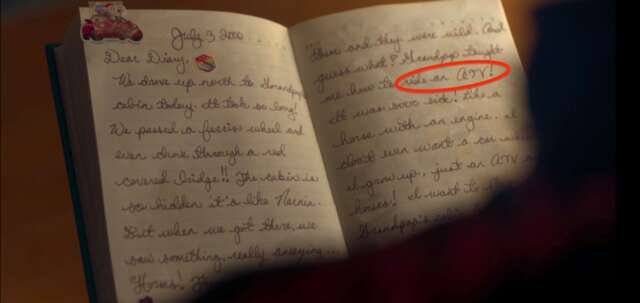 July 3 2000
Dear Diary,
We drove up north to
cabin today. It took so long!
We passed a ferris wheel and
even drove through a red
covered bridge!! The cabin is
so hidden it's like Narnia.
But when we got there we
saw something, really annoying...
Horses!
and they were wild. And
guess what? Grandpap taught
me how to ride an ATV!
It was sooo sick! Like a
horse with an engine. I
don't even want a car
I grow up, just an ATV
horses! I want to
Grandpap's